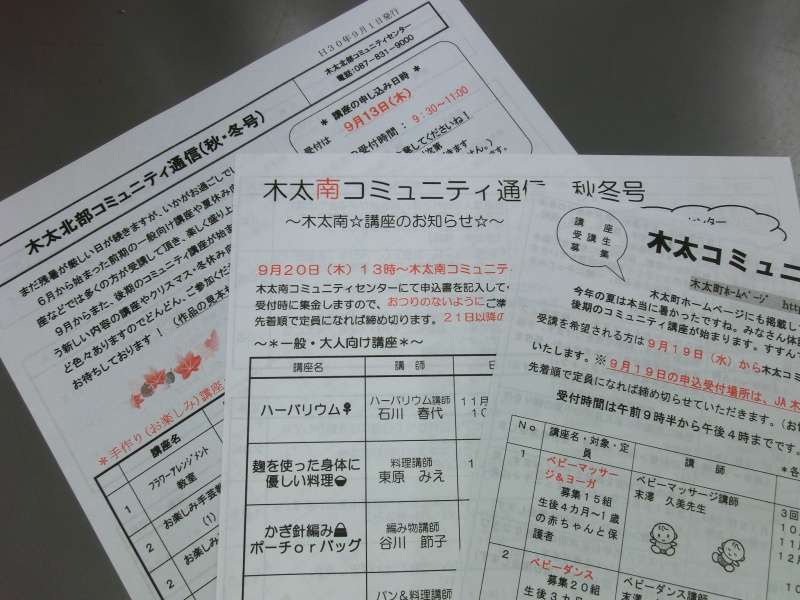 日30年9月1日発行
木太北部コミュニティセンター
電話:087-831-9000
木太北部コミュニティ通信(秋・冬号)
* 講座の申し込み日時 *
9月13日(木)
受付は
の受付時間: 9:30~11:00
してくださいね!
まだ残暑が厳しい日が続きますが、いかがお過ごしでし
6月から始まった前期の一般向け講座や夏休み
座などでは多くの方が受講して頂き、楽しく盛り上
9月からまた、後期のコミュニティ講座が始ま
う新しい内容の講座やクリスマス・冬休み
ど色々ありますのでどんどん、ご参加くだ
お待ちしております! (作品の見本も
*手作り(お楽しみ)講座
講座名
1
フラワーアレンジメント
教室
2
お楽しみ手芸教
(1)
2
お楽しみ
木太南コミュニティ通信 秋冬号
~木太南☆講座のお知らせ☆~
9月20日(木)13時~木太南コミュニテ
木太南コミュニティセンターにて申込書を記入して
受付時に集金しますので、おつりのないようにご準
先着順で定員になれば締め切ります。21日以降の
~*一般・大人向け講座*~
講座名
講 師
ハーバリウム
ハーバリウム講師
石川 春代
11月
10
麹を使った身体に
優しい料理
料理講師
東原 みえ
かぎ針編み
ポーチorバッグ
編み物講師
谷川 節子
パン&料理講師
講 座
受講生
募 集
センター
木太コミュニ
木太町ホームページ htt
木太町ホームページにも掲載し
今年の夏は本当に暑かったですね。みなさん体調
後期のコミュニティ講座が始まります。すすんで
受講を希望される方は9月19日(水)から木太コミ
いたします。※9月19日の申込受付場所は、JA木
先着順で定員になれば締め切らせていただきます。(お
受付時間は午前9時半から午後4時までです。
*各
No
講座名・対象・定
員
講 師
1
ベビーマッサー
ジ&ヨーガ
募集15組
生後4カ月~1歳
の赤ちゃんと保
護者
ベビーマッサージ講師
末澤 久美先生
3回
10
11月
12月
2
ベビーダンス
募集20組
生後3カ月
ベビーダンス講師
末澤